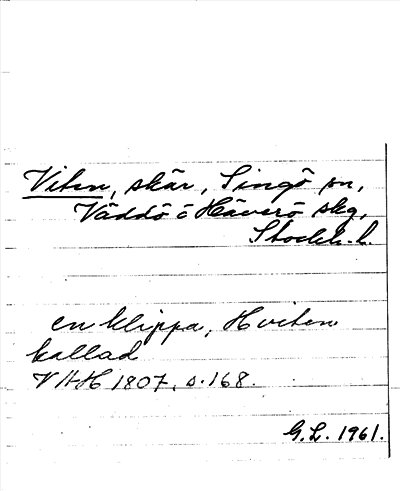 Viten, skär, Singö sn,
Väddö o Häverö skg,
Stockh. l.
en klippa, Hviten
kallad
VAH 1807, s. 168.
G.L. 1961.